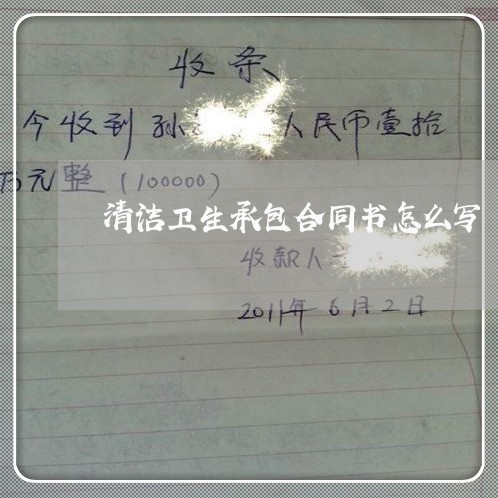 收条
今收到孙 人民币壹拾
万元整(100000)
清洁卫生承包合同书怎么写
收款人
2011年6月2日